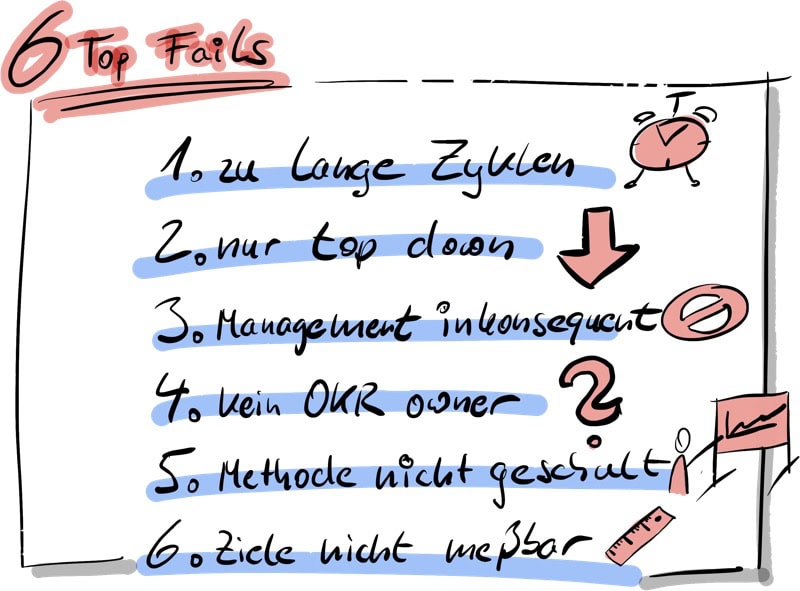 6 Top Fails
1. zu lange Zyklen
2. nur top down
3. Management inkonsequent
4. kein OKR owner
5. Methode nicht geschult
6. Ziele nicht meßbar